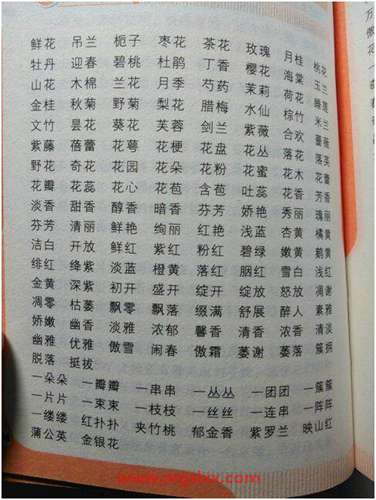 鲜花 吊兰 栀子 枣花 茶花 玫瑰 月桂 桃花
牡丹 迎春 碧桃 杜鹃 丁香 樱花 海棠 玉兰
山花 木棉 兰花 月季 芍药 茉莉 荷花 睡莲
金桂 秋菊 野菊 梨花 腊梅 水仙 棕竹 米兰
文竹 昙花 葵花 芙蓉 剑兰 紫薇 合欢 蔷薇
紫藤 蓓蕾 花萼 花梗 花盘 花丛 落花 落英
野花 奇花 花园 花朵 花粉 花蜜 花木 花蕾
花瓣 花蕊 花心 花苞 含苞 吐蕊 花香 芳香
淡香 甜香 醇香 暗香 芬芳 娇艳 秀丽 瑰丽
芬芳 清丽 鲜艳 绚丽 红艳 浅蓝 杏黄 橘黄
洁白 开放 鲜红 紫红 粉红 碧绿 嫩黄 鹅黄
绯红 绛紫 淡蓝 橙黄 落红 胭红 雪白 浅红
金黄 深紫 初开 盛开 绽开 绽放 怒放 凋谢
凋零 枯萎 飘零 飘落 缀满 舒展 醉人 素雅
娇嫩 幽香 淡雅 浓郁 馨香 清香 浓香 清淡
幽雅 优雅 傲雪 闹春 傲霜 萎谢 萎落 簇拥
脱落 挺拔
一朵朵 一瓣瓣 一串串 一丛丛 一团团 一簇簇
一片片 一束束 一枝枝 一丝丝 一连串 一阵阵
一缕缕 红扑扑 夹竹桃 郁金香 紫罗兰 映山红
蒲公英 金银花